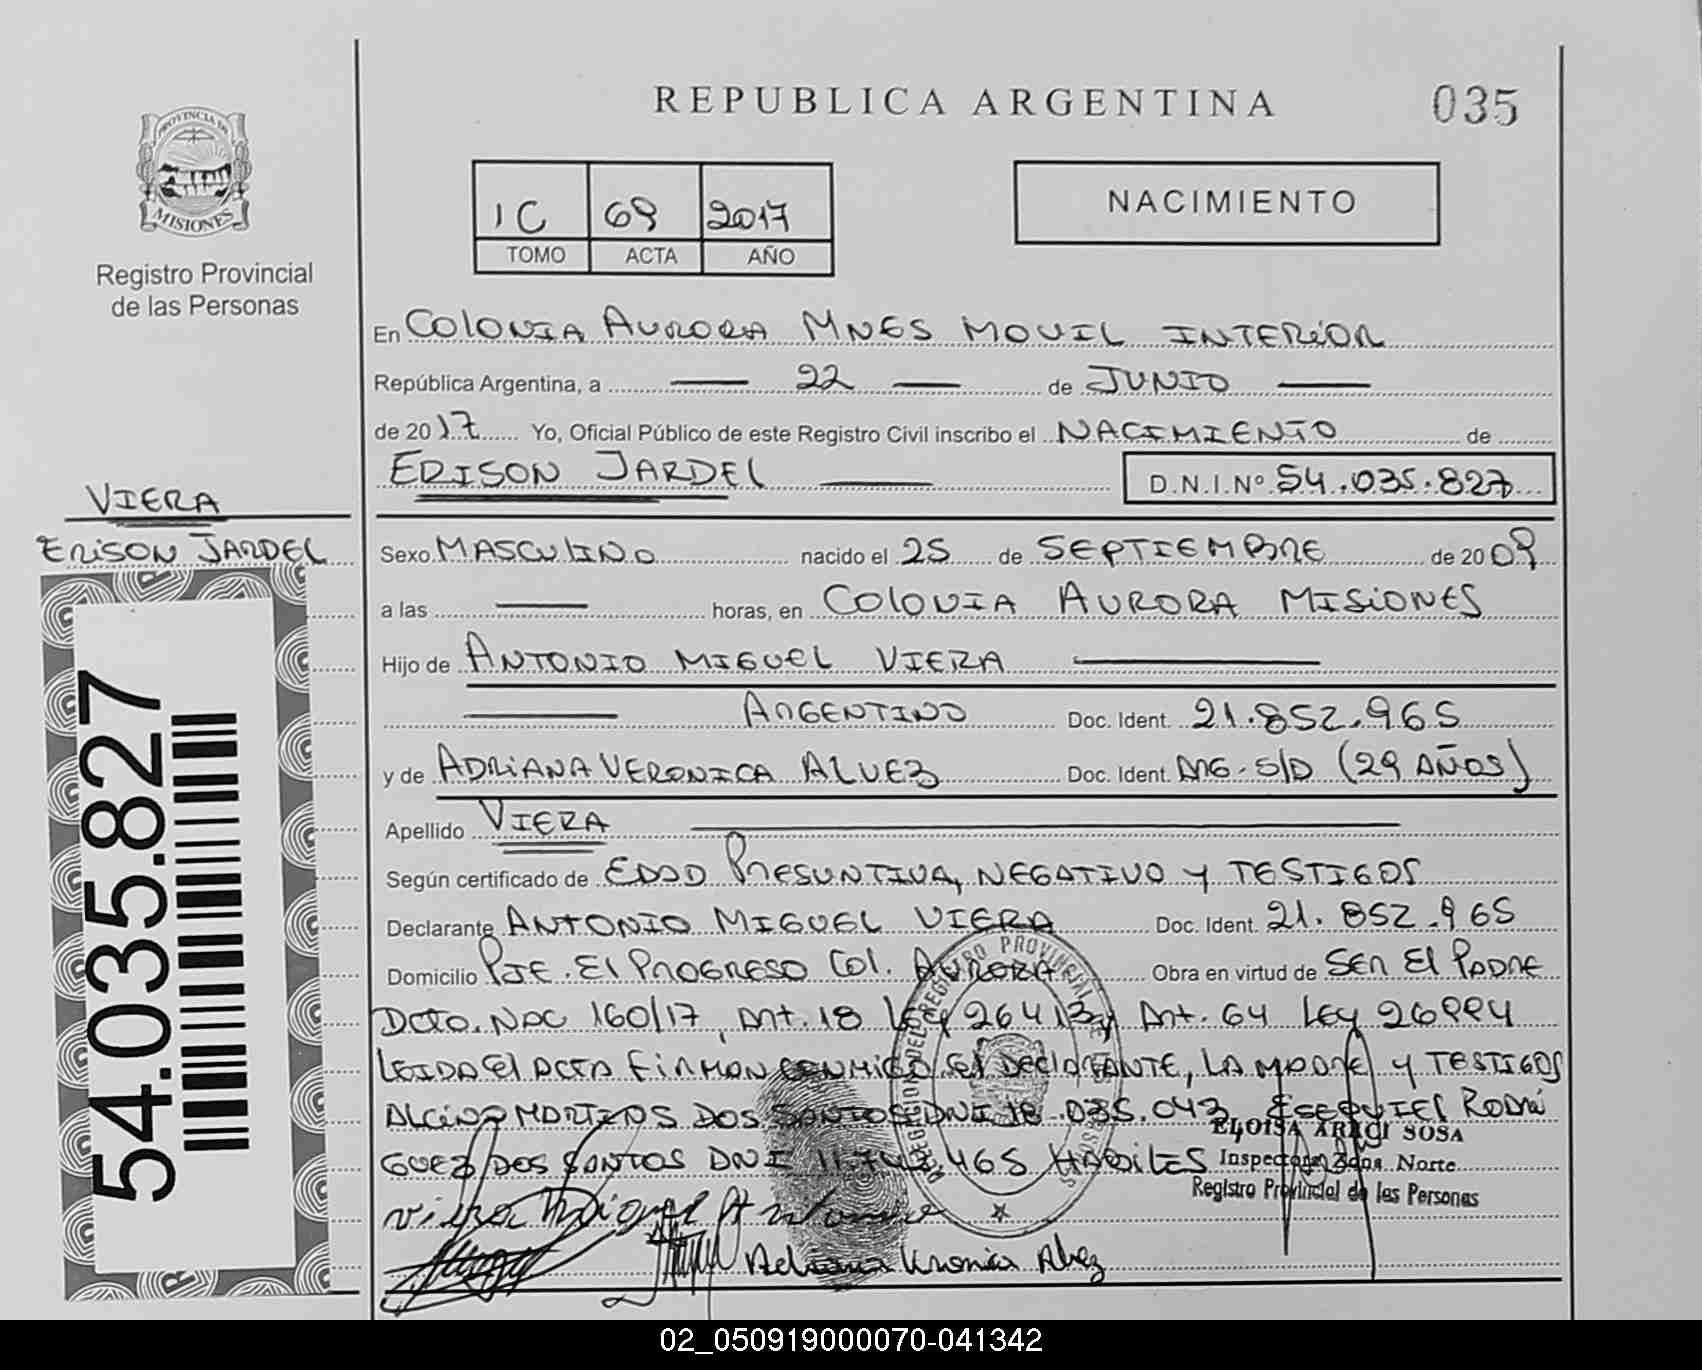 REPUBLICA ARGENTINA
035
PROVINCIA DE
MISIONES
Registro Provincial
de las Personas
1C 69 2017
TOMO ACTA AÑO
NACIMIENTO
En COLONIA AURORA MNES MOVIL INTERIOR
República Argentina, a 22 de JUNIO
de 2017 Yo, Oficial Público de este Registro Civil inscribo el NACIMIENTO de
ERISON JARDEL
D.N.I.Nº 54.035.827
VIERA
ERISON JARDEL
54.035.827
Sexo MASCULINO nacido el 25 de SEPTIEMBRE de 2009
a las horas, en COLONIA AURORA MISIONES
Hijo de ANTONIO MIGUEL VIERA
ARGENTINO Doc. Ident. 21.852.965
y de ADRIANA VERONICA ALVEZ Doc. Ident. ARG. S/D (29 AÑOS)
Apellido VIERA
Según certificado de EDAD PRESUNTIVA, NEGATIVO Y TESTIGOS
Declarante ANTONIO MIGUEL VIERA Doc. Ident. 21.852.965
Domicilio PJE. El PROGRESO Col. AURORA Obra en virtud de SER El PADRE
DCTO. NAC 160/17, Art. 18 Ley 26413 y Art. 64 Ley 26994
LEIDA El ACTA FIRMAN CONMIGO El DECLARANTE, LA MADRE Y TESTIGOS
MARTINS DOS SANTOS DNI 18.035.043, ESEQUIEL RODRI
GUEZ DOS SANTOS DNI 465 HABILES
ELOISA ARACI SOSA
Inspectora Zona Norte
Registro Provincial de las Personas
Viera Miguel Antonio
Adriana Veronica Alvez
02_050919000070-041342